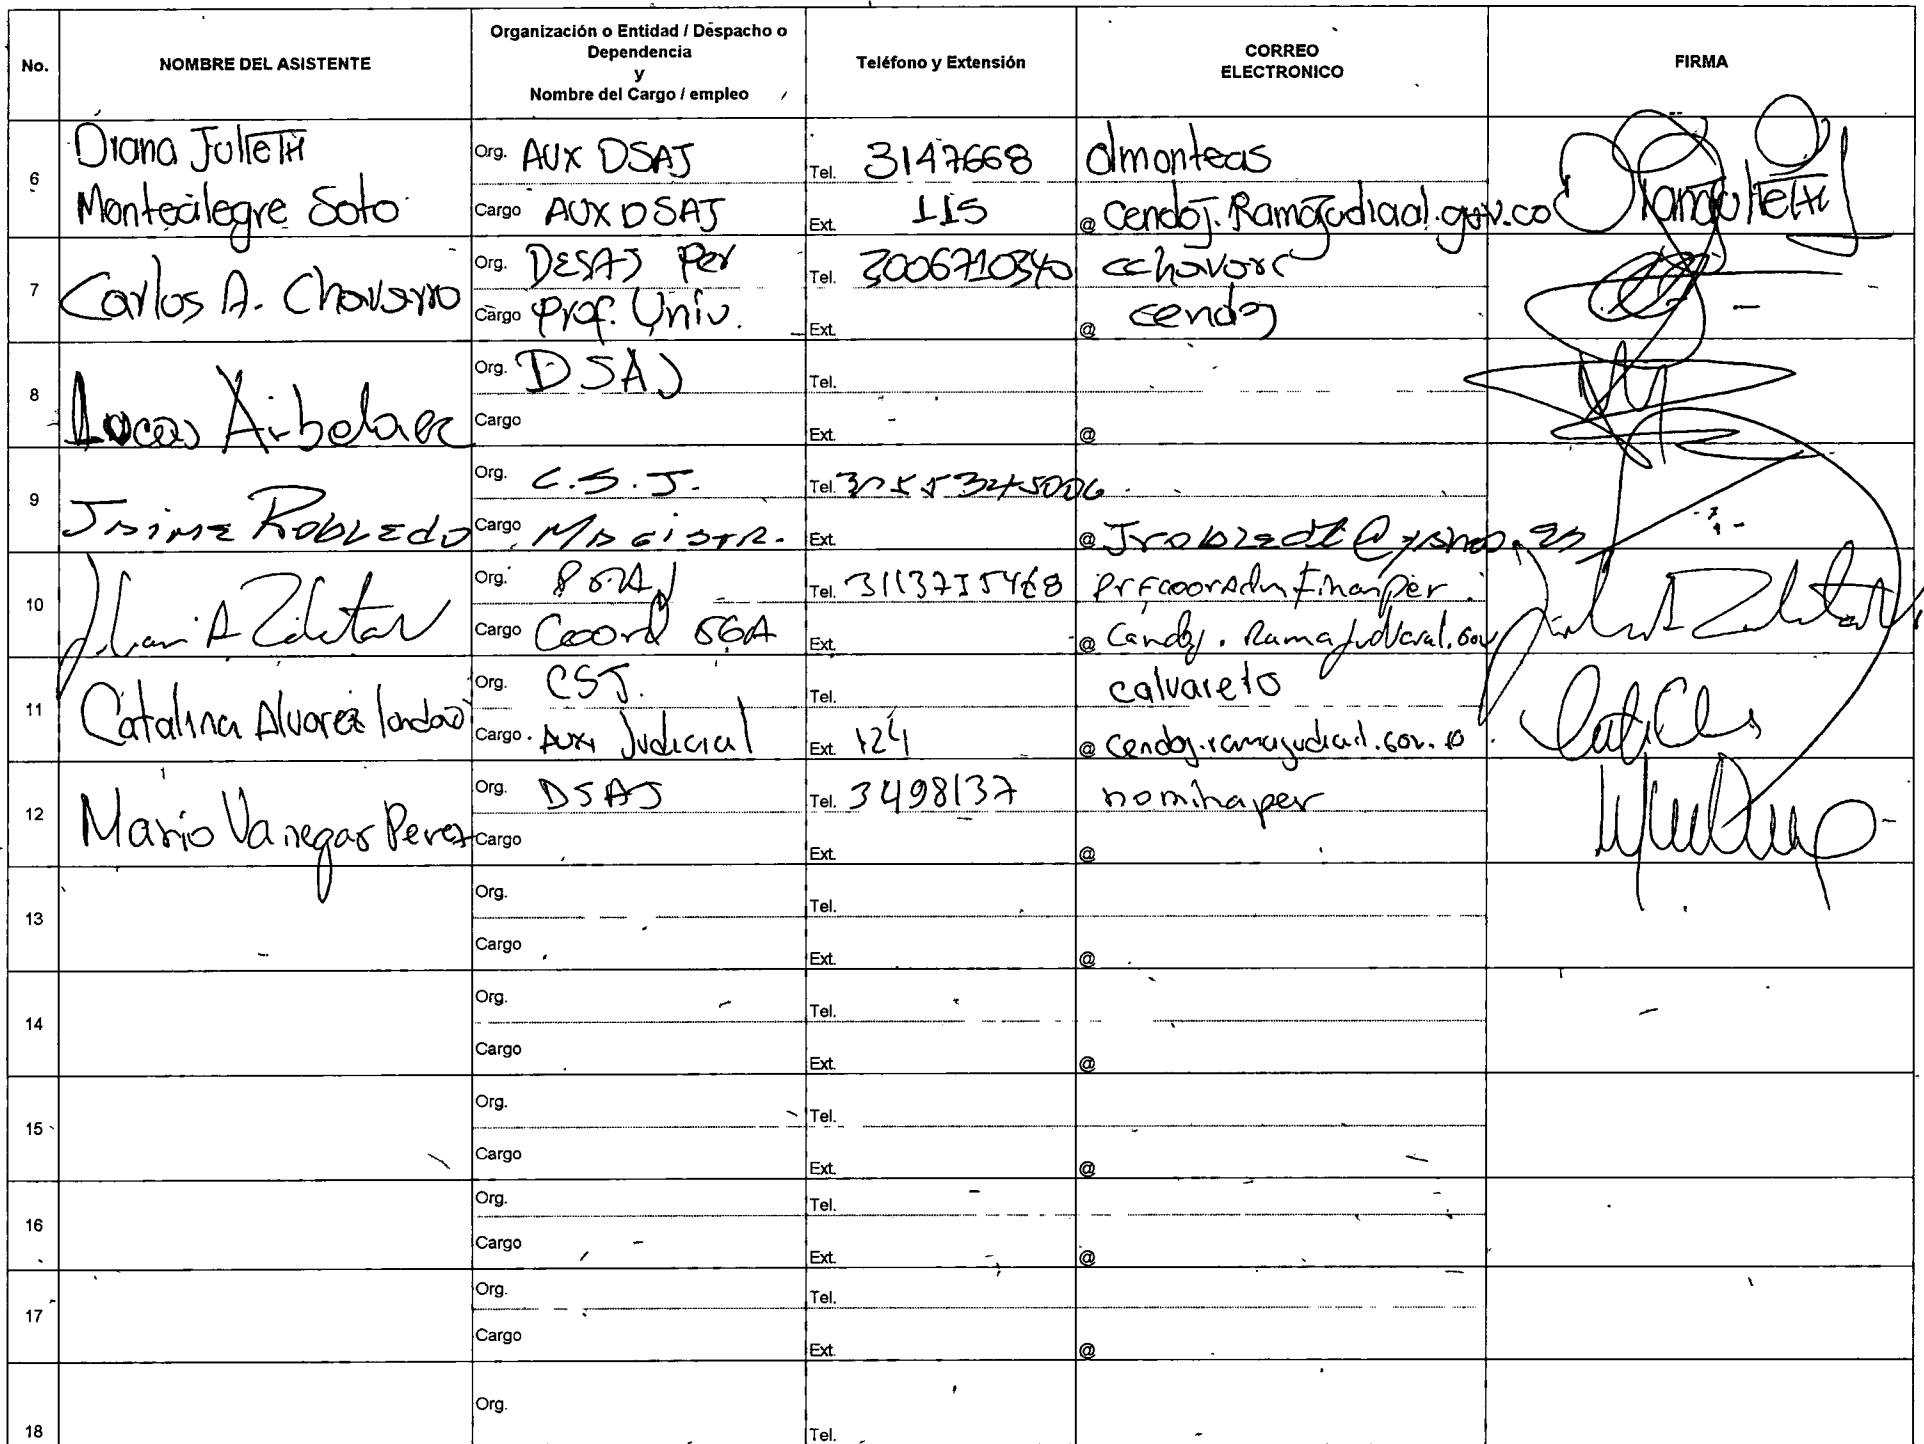 No.
NOMBRE DEL ASISTENTE
Organización o Entidad / Despacho o
Dependencia
y
Nombre del Cargo / empleo
Teléfono y Extensión
CORREO
ELECTRONICO
FIRMA
6
Diana Julieth
Montealegre Soto
Org. AUX DSAJ
Cargo AUX DSAJ
Tel. 3147668
Ext. 115
dmonteas
@ cendoj.Ramajudicial.gov.co
7
Carlos A. Chavarro
Org. DESAJ Per
Cargo Prof. Univ.
Tel. 3006710340
Ext.
cchavarc
@ cendoj
8
Lucas Arbelaez
Org. DSAJ
Cargo
Tel.
Ext.
@
9
Jaime Robledo
Org. C.S.J.
Cargo Magistr.
Tel.
Ext.
@
10
Org.
Cargo Coord SGA
Tel.
Ext.
prfcoorAdmfinanper
@ Cendoj. Ramajudicial.Gov
11
Catalina Alvarez londoño
Org. CSJ.
Cargo Aux Judicial
Tel.
Ext. 124
calvareto
@ cendoj.ramajudicial.gov.co
12
Mario Vanegas Perez
Org. DSAJ
Cargo
Tel. 3498137
Ext.
nominaper
@
13
Org.
Cargo
Tel.
Ext.
@
14
Org.
Cargo
Tel.
Ext.
@
15
Org.
Cargo
Tel.
Ext.
@
16
Org.
Cargo
Tel.
Ext.
@
17
Org.
Cargo
Tel.
Ext.
@
18
Org.
Tel.